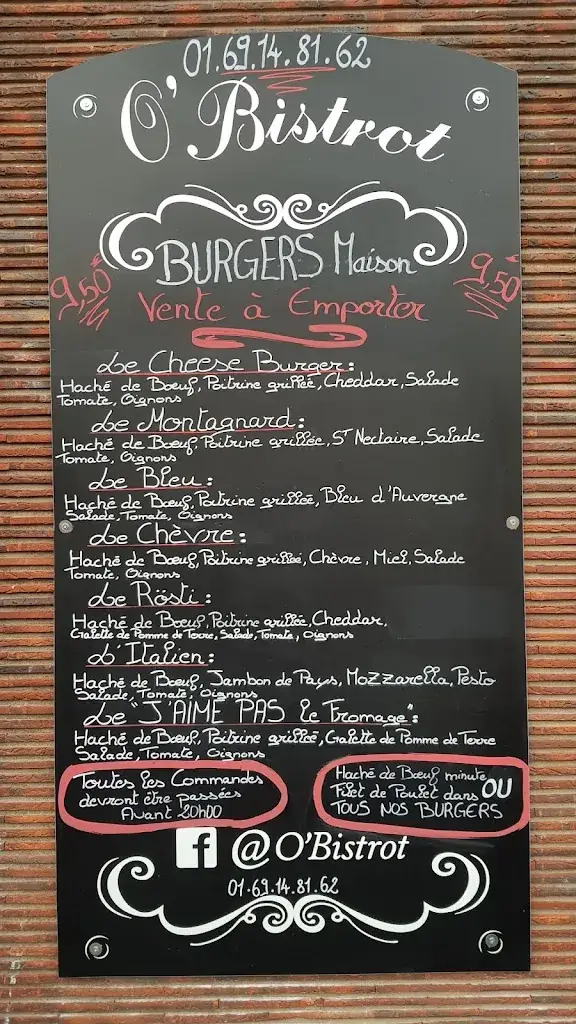 01.69.14.81.62
O'Bistrot
BURGERS Maison
9,50€ 9,50
Vente à Emporter
Le Cheese Burger :
Haché de Bœuf, Poitrine grillée, Cheddar, Salade
Tomate, Oignons
Le Montagnard :
Haché de Bœuf, Poitrine grillée, ST Nectaire, Salade
Tomate, Oignons
Le Bleu :
Haché de Bœuf, Poitrine grillée, Bleu d'Auvergne
Salade, Tomate, Oignons
Le Chèvre :
Haché de Bœuf, Poitrine grillée, Chèvre, Miel, Salade
Tomate, Oignons
Le Rösti :
Haché de Bœuf, Poitrine grillée, Cheddar,
Galette de Pomme de Terre, Salade, Tomate, Oignons
L'Italien :
Haché de Bœuf, Jambon de Pays, Mozzarella, Pesto
Salade, Tomate, Oignons
Le "J'AIME PAS le Fromage" :
Haché de Bœuf, Poitrine grillée, Galette de Pomme de Terre
Salade, Tomate, Oignons
Toutes les Commandes
devront être passées
Avant 20h00
Haché de Bœuf minute OU
Filet de Poulet dans
TOUS NOS BURGERS
f @O'Bistrot
01.69.14.81.62